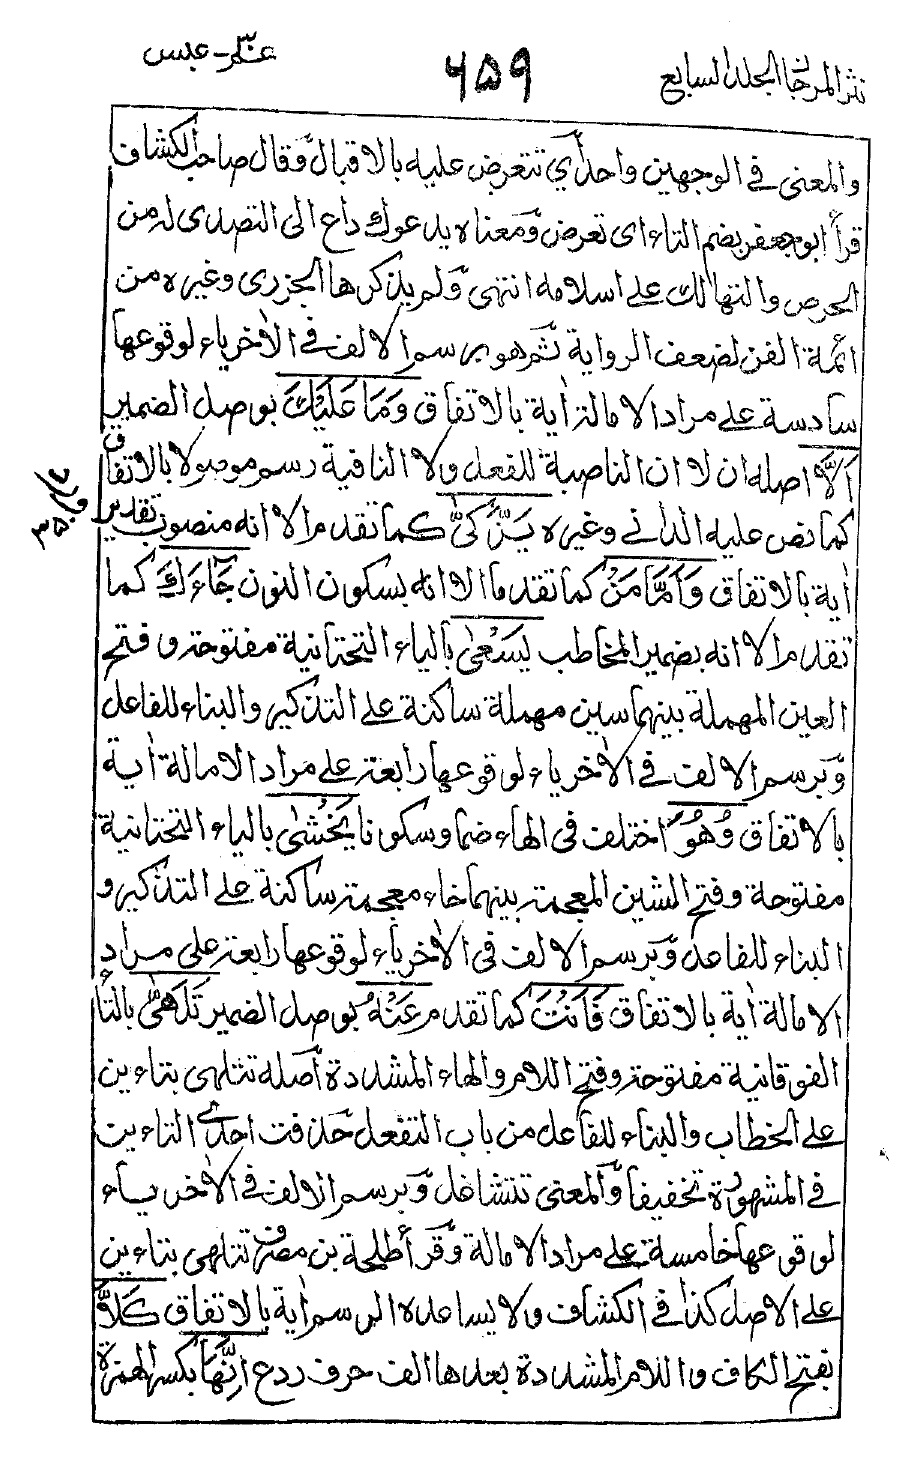 نثر المرجان الجلد السابع
٦٥٩
عمّ - عبس
والمعنى في الوجهين واحد أي تتعرض عليه بالاقبال وقال صاحب الكشاف
قرأ ابو جعفر بضم التاء اى تعرض ومعناه يدعوك داع الى التصدى له من
الحرص والتهالك على اسلامه انتهى ولم يذكرها الجزرى وغيره من
ائمة الفن لضعف الرواية ثم هو برسم الالف في الاٰخر ياء لوقوعها
سادسة على مراد الامالة اٰية بالاتفاق وَمَا عَلَيْكَ بوصل الضمير
اَلَّا اصله ان لا ان الناصبة للفعل ولا النافية رسم موصولا بالاتفاق
كما نص عليه الدانى وغيره يَزَّكّٰى كما تقدم الا انه منصوب تقديرا
اٰية بالاتفاق وَاَمَّا مَنْ كما تقدما الا انه بسكون النون جَآءَكَ كما
تقدم الا انه بضمير المخاطب يَسْعٰى بالياء التحتانية مفتوحة وفتح
العين المهملة بينهما سين مهملة ساكنة على التذكير والبناء للفاعل
وبرسم الالف في الاٰخر ياء لوقوعها رابعة على مراد الامالة اٰية
بالاتفاق وَهُوَ اختلف فى الهاء ضما وسكونا يَخْشٰى بالياء التحتانية
مفتوحة وفتح الشين المعجمة بينهما خاء معجمة ساكنة على التذكير و
البناء للفاعل وبرسم الالف فى الاٰخر ياء لوقوعها رابعة على مراد
الامالة اٰية بالاتفاق فَاَنْتَ كما تقدم عَنْهُ بوصل الضمير تَلَهّٰى بالتاء
الفوقانية مفتوحة وفتح اللام والهاء المشددة اصله تتلهى بتاءين
على الخطاب والبناء للفاعل من باب التفعل حذفت احدى التاءين
في المشهورة تخفيفا والمعنى تتشاغل وبرسم الالف في الاٰخر ياء
لوقوعها خامسة على مراد الامالة وقرأ طلحة بن مصرف تتلهى بتاءين
على الاصل كذا في الكشاف ولا يساعده الرسم اٰية بالاتفاق كَلَّا
بفتح الكاف واللام المشددة بعدها الف حرف ردع اِنَّهَا بكسر الهمزة